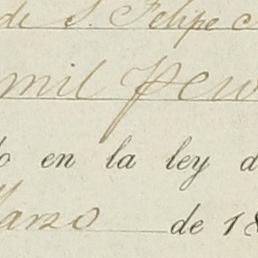 de S. Felipe
mil
en la ley d
Marzo de 18